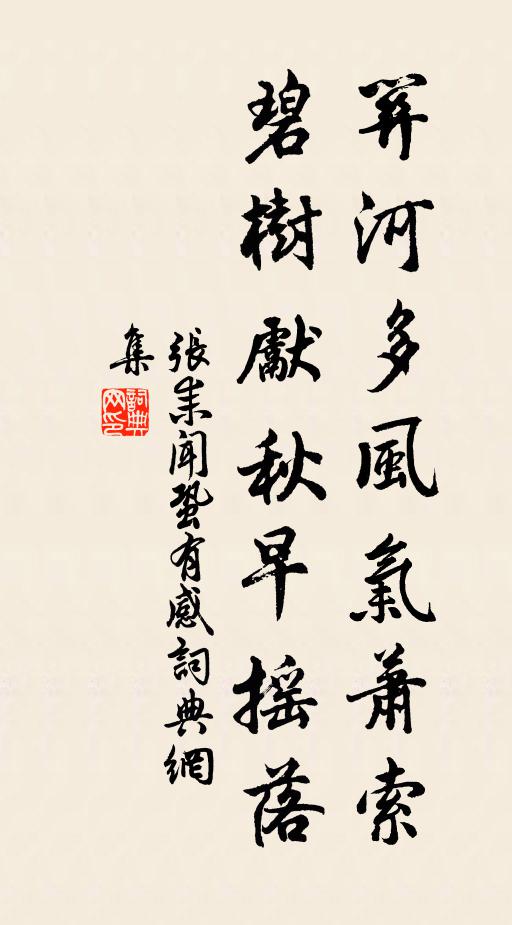 关河多風氣蕭索
碧樹獻秋早搖落
張耒聞蛩有感詞典網
集
詞典
网印